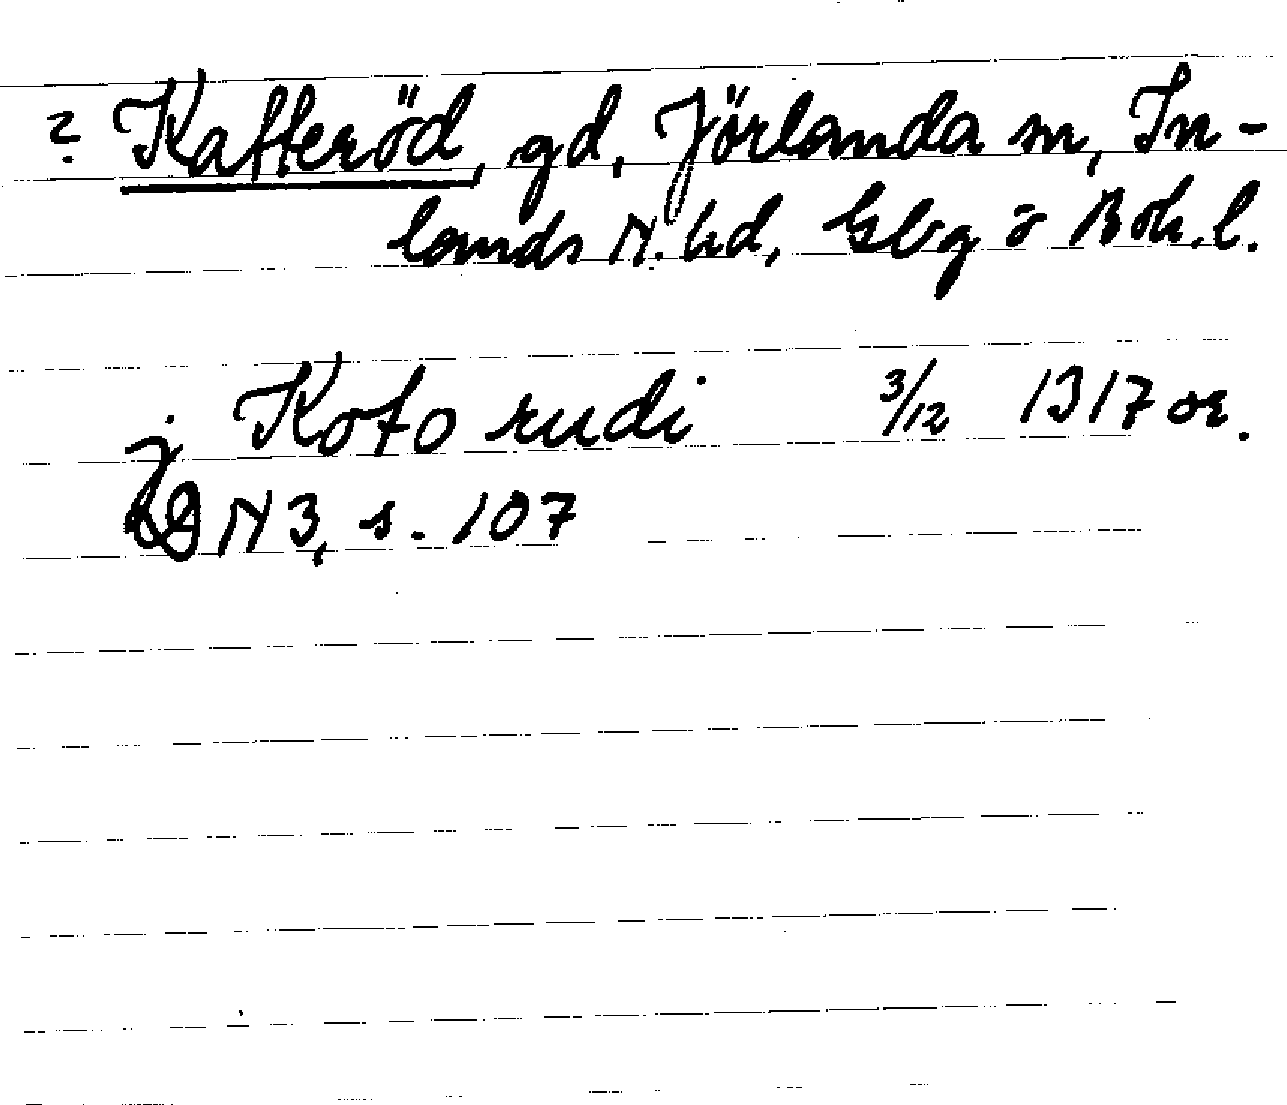 ? Kafferöd, gd, Jörlanda sn, In-
lands N. hd, Gbg o Boh. l.
j Koforudi 3/12 1317 or.
DN 3, s. 107